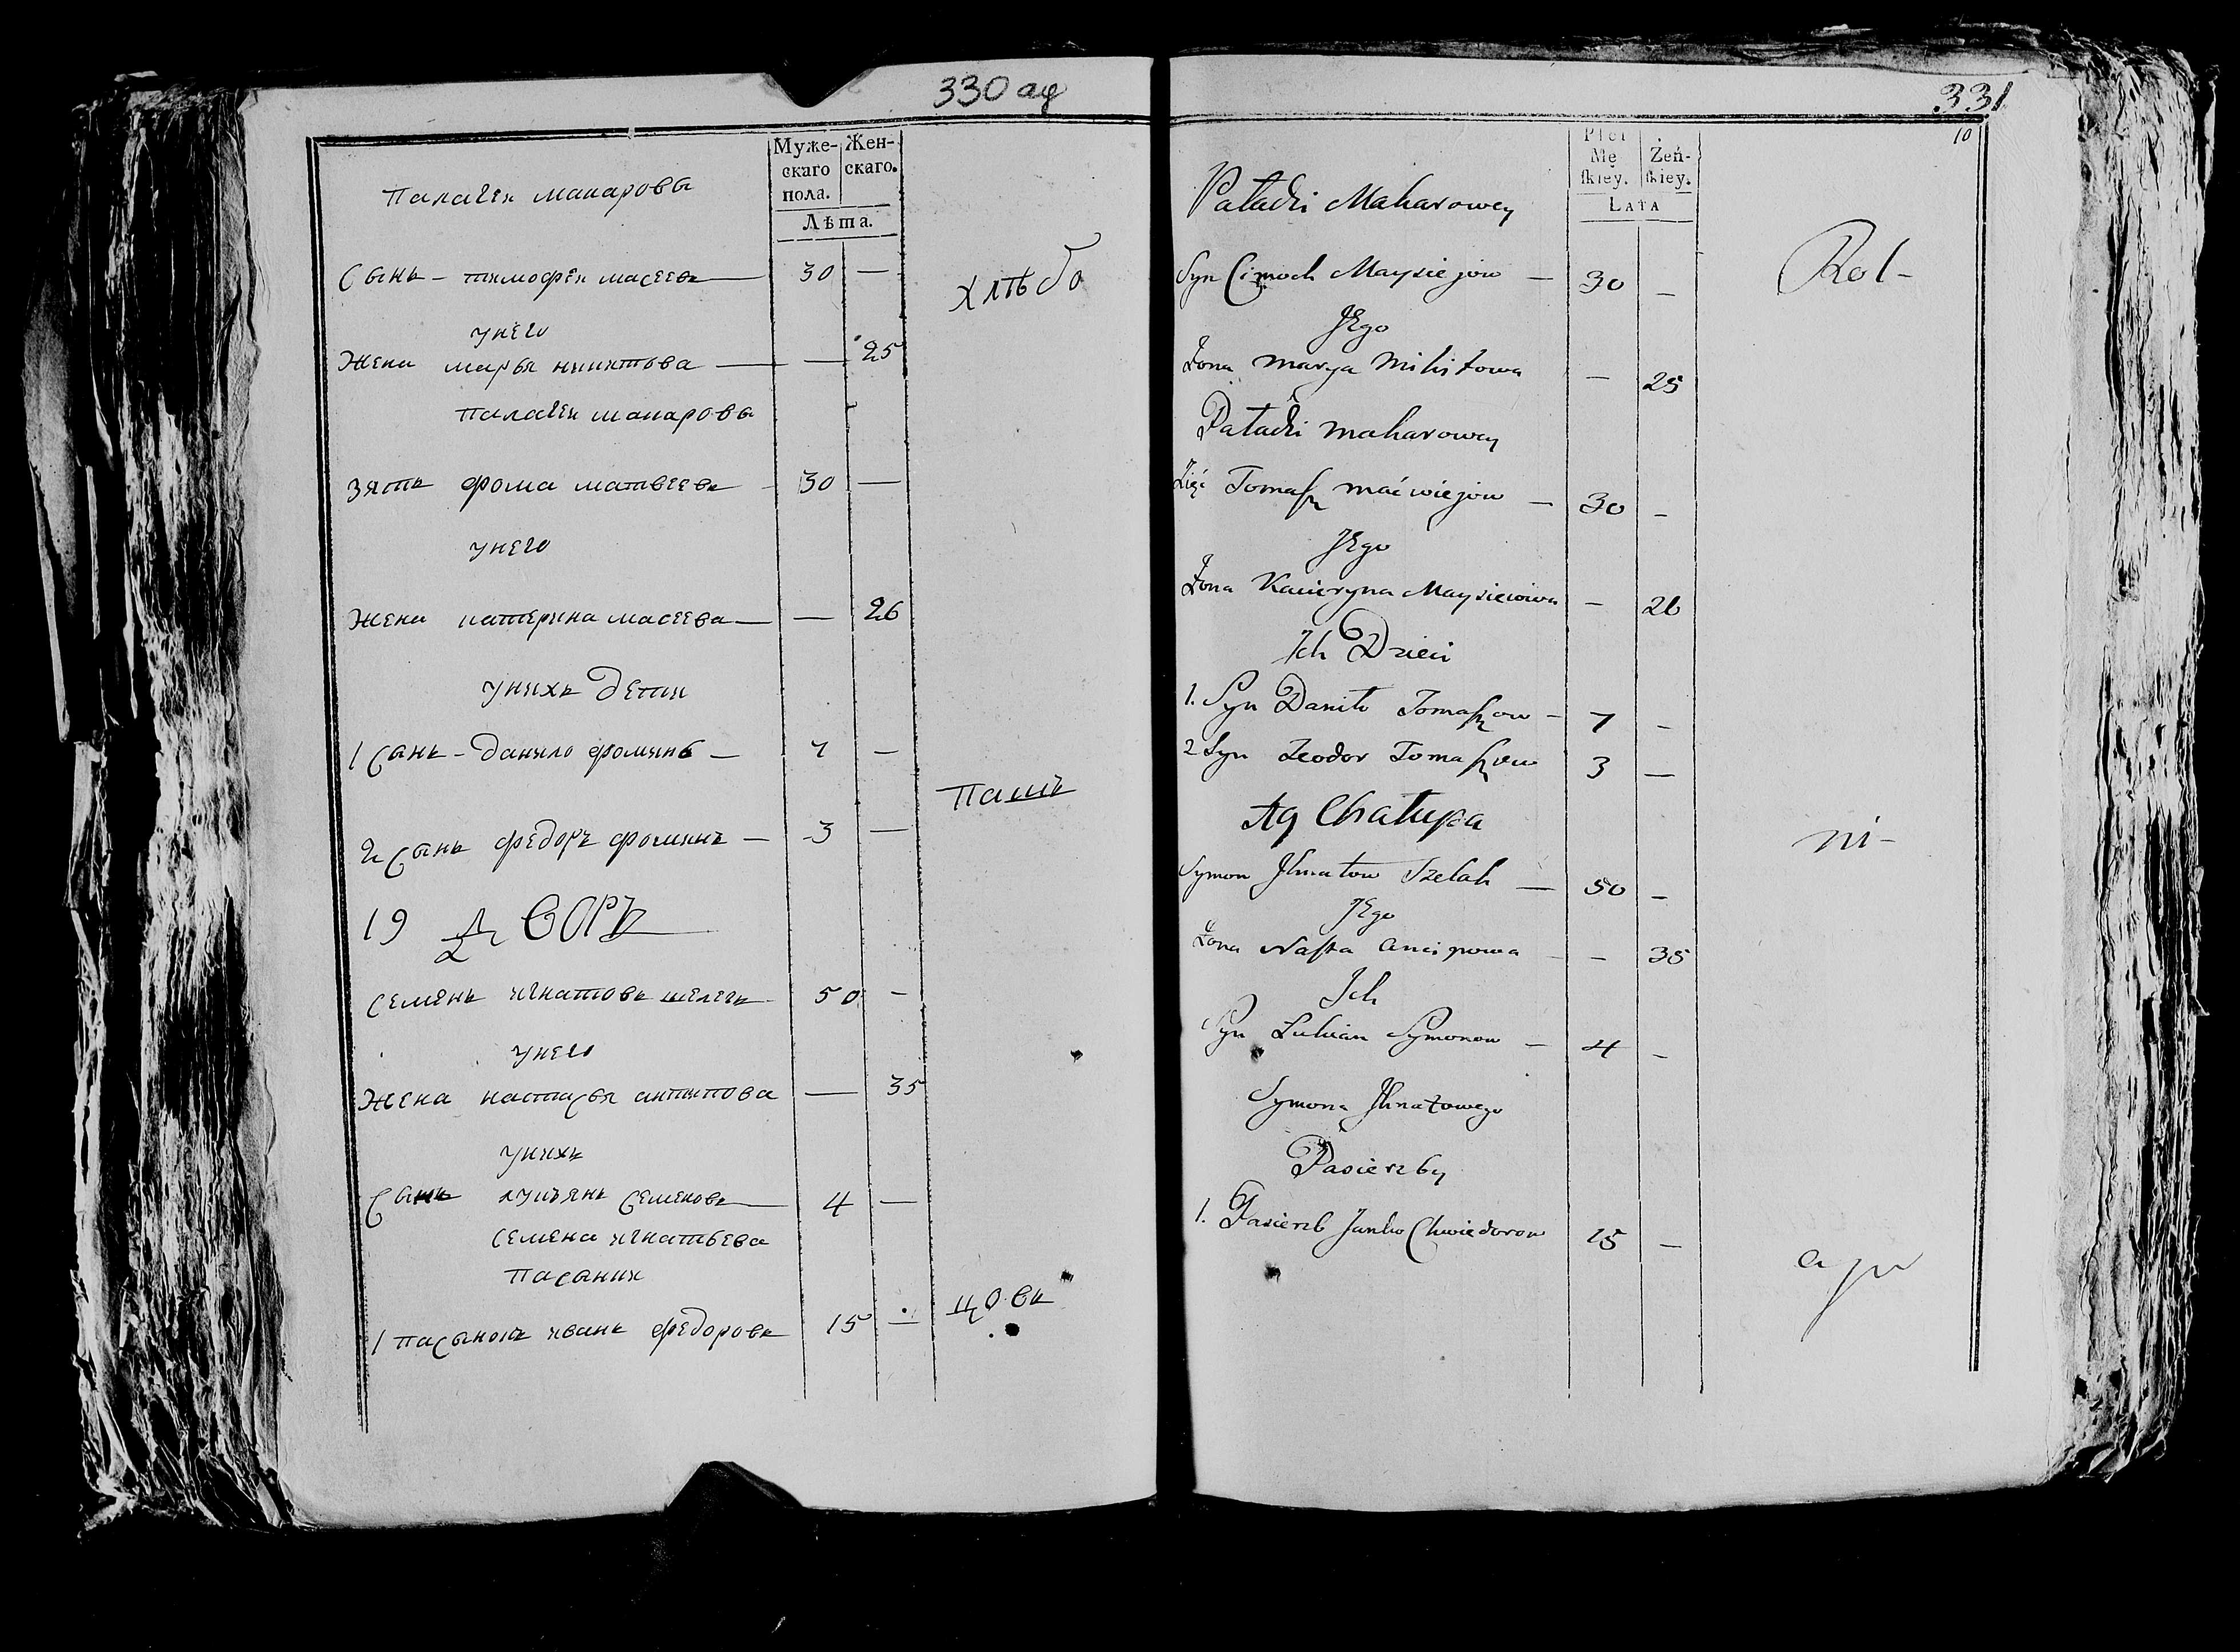 330 ад
Муже-
скаго
пола.
Жен-
скаго.
Лѣта.
Палагеи макаровы
Сынъ - тимофеи масеевъ — 30 —
унего
Жена марья никитова — — 25
Палагеи макаровы
зять фома матвеевъ - 30 —
унего
Жена катерина масеева — — 26
унихъ дети
1 сынъ - данило фоминъ — 7 —
2 сынъ федоръ фоминъ — 3 —
19 Дворъ
семенъ игнатовъ шелегъ - 50 -
унего
Жена настасья антипова — 35
унихъ
Сынъ лукьянъ семеновъ — 4 —
семена игнатьева
пасынки
1 пасынокъ иванъ федоровъ 15 —
хлѣбо
пашъ
цовъ
331
10
Płci
Mę
skiey.
Żeń-
skiey.
LATA
Paładzi Makarowey
Syn Cimoch Maysiejow — 30 -
JEgo
Żona Marya Mikitowa - 25
Paładzi Makarowey
Zięć Tomasz Maćwiejow — 30 -
JEgo
Żona Kacieryna Maysiejowa - 26
Ich Dzieci
1. Syn Daniło Tomaszow - 7 -
2 Syn Teodor Tomaszow 3 —
19 Chałupa
Symon Jhnatow Szelah — 50 -
JEgo
Żona Nasta Ancipowa - - 35
Ich
Syn Lukian Symonow - 4 -
Symona Jhnatowego
Pasierzby
1. Pasierzb Janko Chwiedorow 15 -
Rol-
ni-
cy